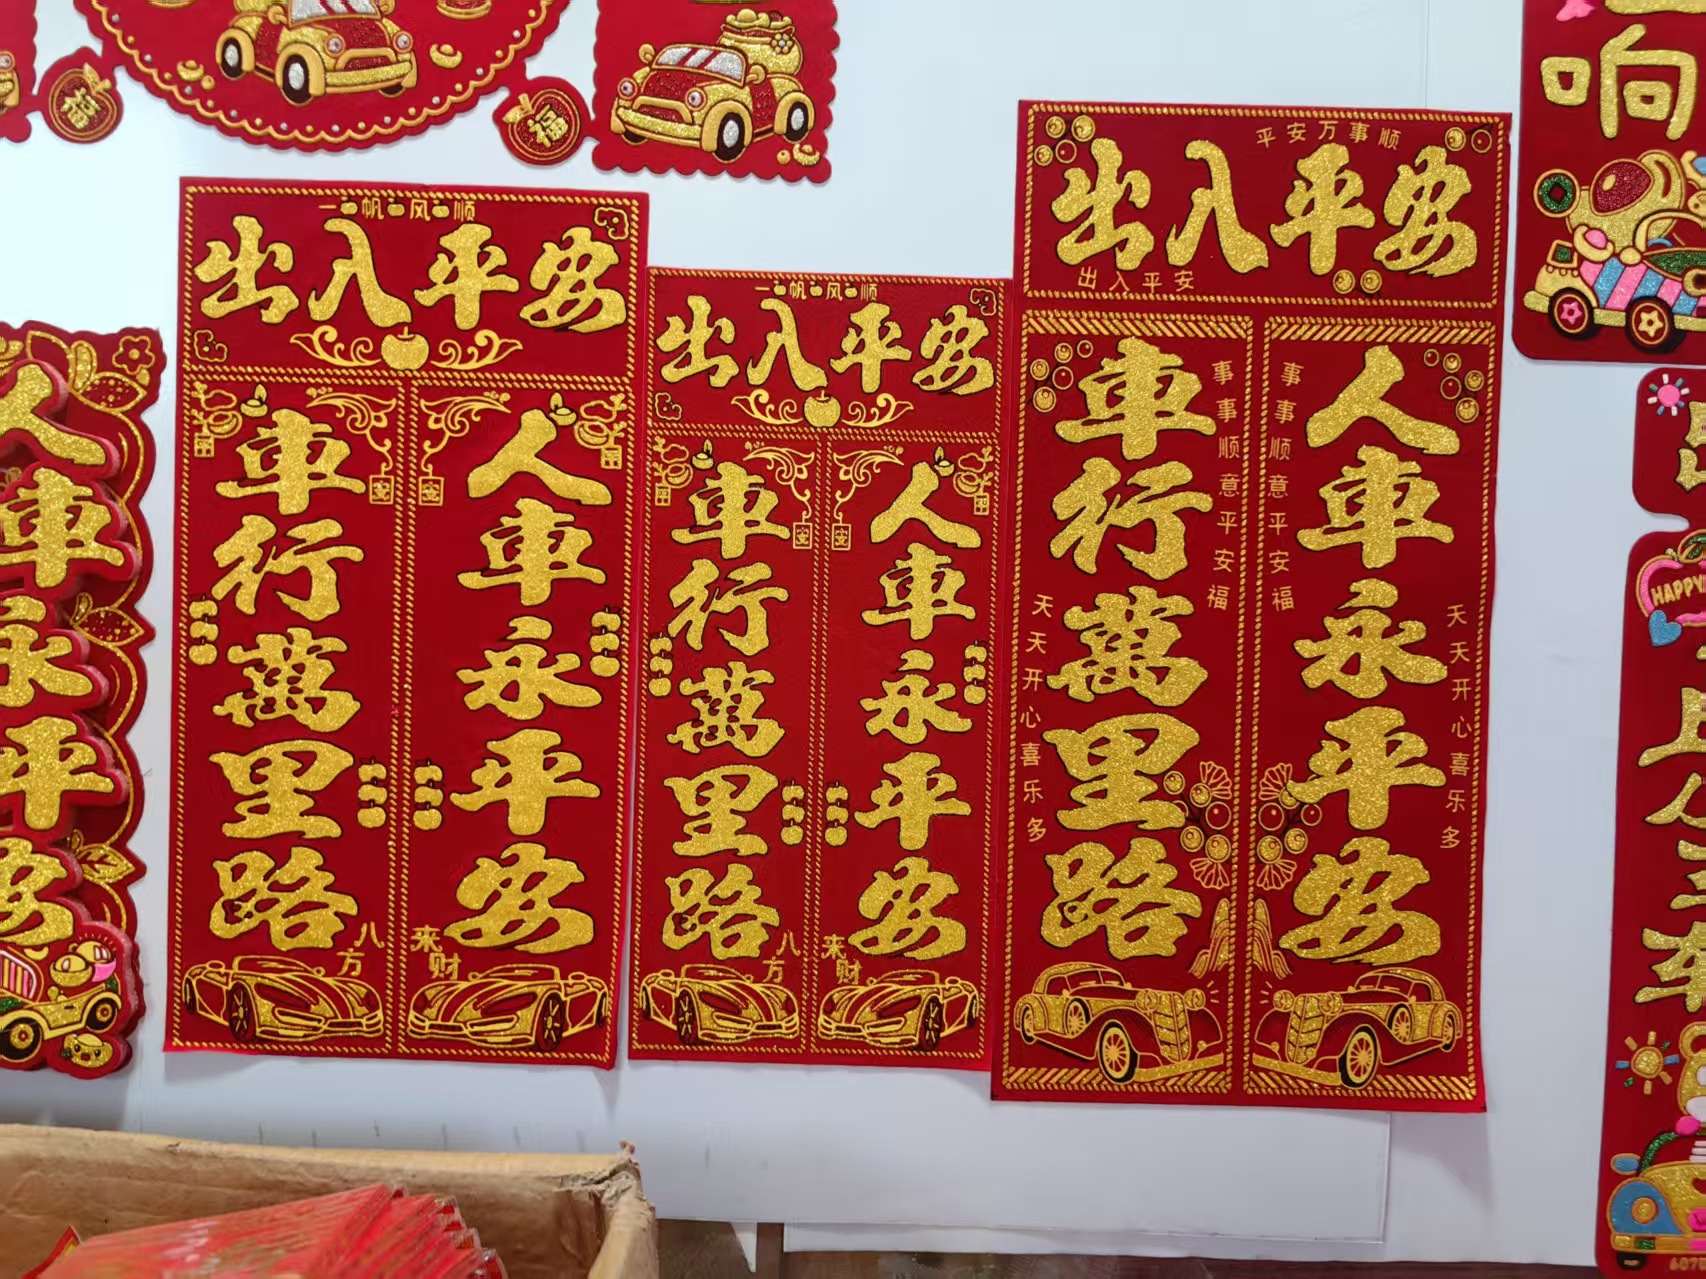 福
福
一帆风顺
出入平安
人車永平安
車行萬里路
安
安
八方
来财
一帆风顺
出入平安
人車永平安
車行萬里路
安
安
八方
来财
平安万事顺
出入平安
出入平安
人車永平安
車行萬里路
事事顺意平安福
事事顺意平安福
天天开心喜乐多
天天开心喜乐多
人車永平安
响
HAPPY
上